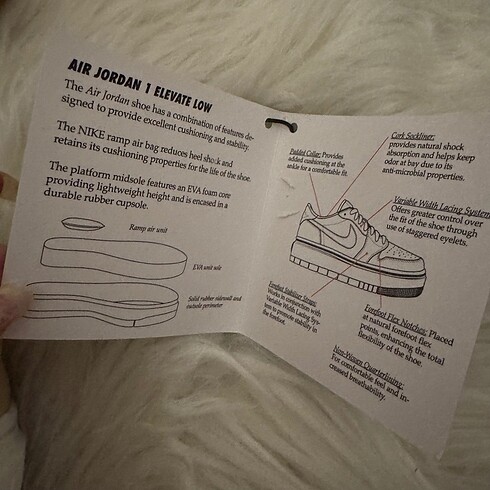 AIR JORDAN 1 ELEVATE LOW
The Air Jordan shoe has a combination of features de-
signed to provide excellent cushioning and stability.
The NIKE ramp air bag reduces heel shock and
retains its cushioning properties for the life of the shoe.
The platform midsole features an EVA foam core
providing lightweight height and is encased in a
durable rubber cupsole.
Ramp air unit
EVA unit sole
Solid rubber sidewall and
outsole perimeter
Padded Collar: Provides
added cushioning at the
ankle for a comfortable fit.
Cork Sockliner:
provides natural shock
absorption and helps keep
odor at bay due to its
anti-microbial properties.
Variable Width Lacing System:
Offers greater control over
the fit of the shoe through
use of staggered eyelets.
Forefoot Stabilizer Straps:
Works in conjunction with
Variable Width Lacing Sys-
tem to promote stability in
the forefoot.
Forefoot Flex Notches: Placed
at natural forefoot flex
points, enhancing the total
flexibility of the shoe.
Non-Woven Quarterlining:
For comfortable feel and in-
creased breathability.